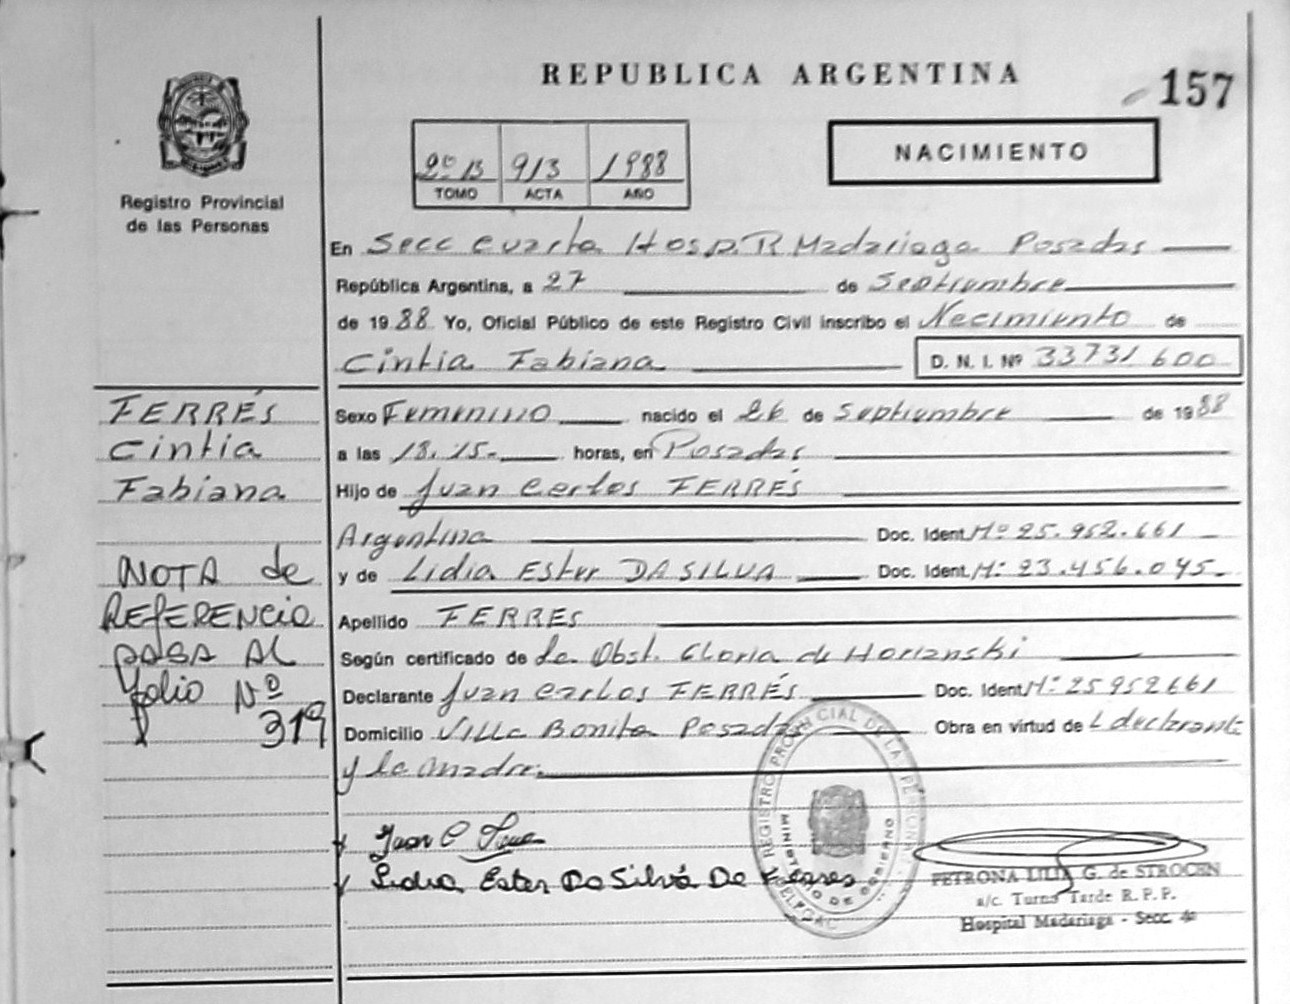 REPUBLICA ARGENTINA
157
2º B 913 1988
TOMO ACTA AÑO
NACIMIENTO
Registro Provincial
de las Personas
En Secc cuarta Hosp. R Madariaga Posadas
República Argentina, a 27 de Septiembre
de 1988 Yo, Oficial Público de este Registro Civil inscribo el Nacimiento de
Cintia Fabiana D. N. I. Nº 33731600
FERRÉS
Cintia
Fabiana
Sexo Femenino nacido el 26 de Septiembre de 1988
a las 18.15.- horas, en Posadas
Hijo de Juan Carlos FERRÉS
Argentina Doc. Ident Nº 25.952.661
y de Lidia Ester DA SILVA Doc. Ident. Nº 23.456.045.
Apellido FERRES
Según certificado de La Obst. Gloria de Horianski
Declarante Juan Carlos FERRÉS Doc. Ident Nº 25952661
Domicilio Villa Bonita Posadas Obra en virtud de L declarante
y la madre.
NOTA de
REFERENCIA
PASA AL
folio Nº
319
Juan C
Lidia Ester Da Silva De
REGISTRO PROVINCIAL DE LA PERSONAS
MINISTERIO DE GOBIERNO
PETRONA LILIA G. de STROCEN
a/c. Turno Tarde R. P. P.
Hospital Madariaga - Secc. 4a